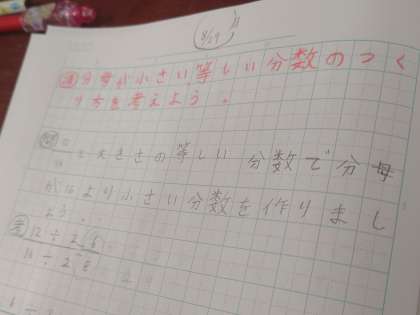 8/29
分母が小さい等しい分数のつく
り方を考えよう。
と大きさの等しい分数で分母
が16より小さい分数を作りまし
ょう。
12÷2 6
16÷2 8